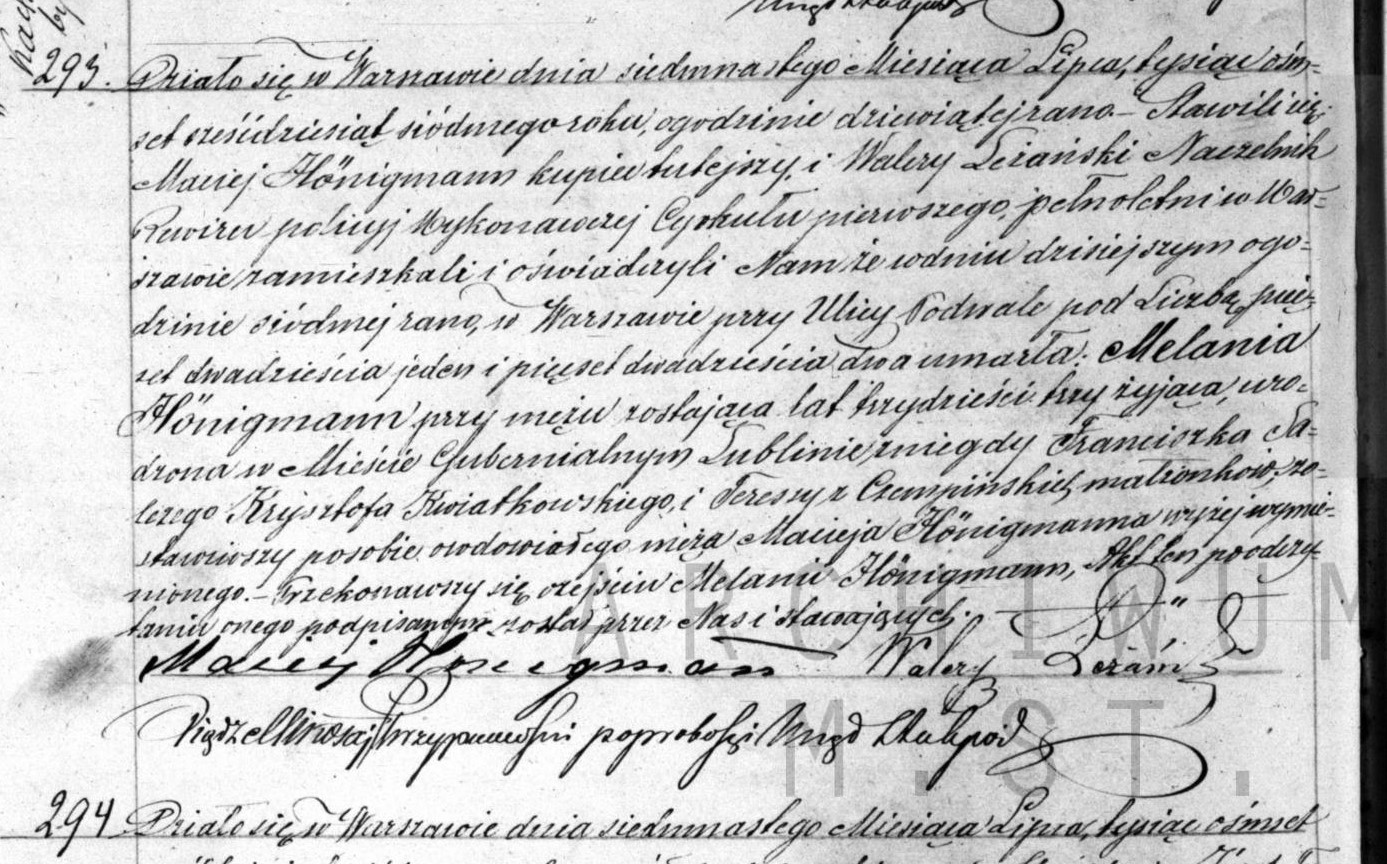 293. Działo się w Warszawie dnia siedmnastego Miesiąca Lipca, tysiąc ośm=
set sześćdziesiąt siódmego roku, ogodzinie dziewiątej rano.- Stawili się,
Maciej Hönigmann kupiec tutejszy, i Walery Leżański Naczelnik
Rewiru policyj Wykonawczej Cyrkułu pierwszego, pełnoletni w War=
szawie zamieszkali i oświadczyli Nam że wdniu dzisiejszym ogo=
dzinie siódmej rano, w Warszawie przy Ulicy Podwale pod Liczbą pięć=
set dwadzieścia jeden i pięćset dwadzieścia dwa umarła. Melania
Hönigmann przy mężu zostająca lat trzydzieści trzy żyjąca, uro=
dzona w Mieście Gubernialnym Lublinie, zniegdy Franciszka Sa=
lezego Krysztofa Kwiatkowskiego, i Teressy z Czempińskich małżonków, zo=
stawiwszy posobie owdowiałego męża Macieja Hönigmanna wyżej wymie=
nionego.- Przekonawszy się o zejściu Melanii Hönigmann, Akt ten poodczy=
taniu onego podpisanym został przez Nas i stawających.
Maciej Hönigmann Walery Leżański
Ksiądz
294 Działo się w Warszawie dnia siedmnastego Miesiąca Lipca, tysiąc ośmset
ARCHIWUM
M.ST.